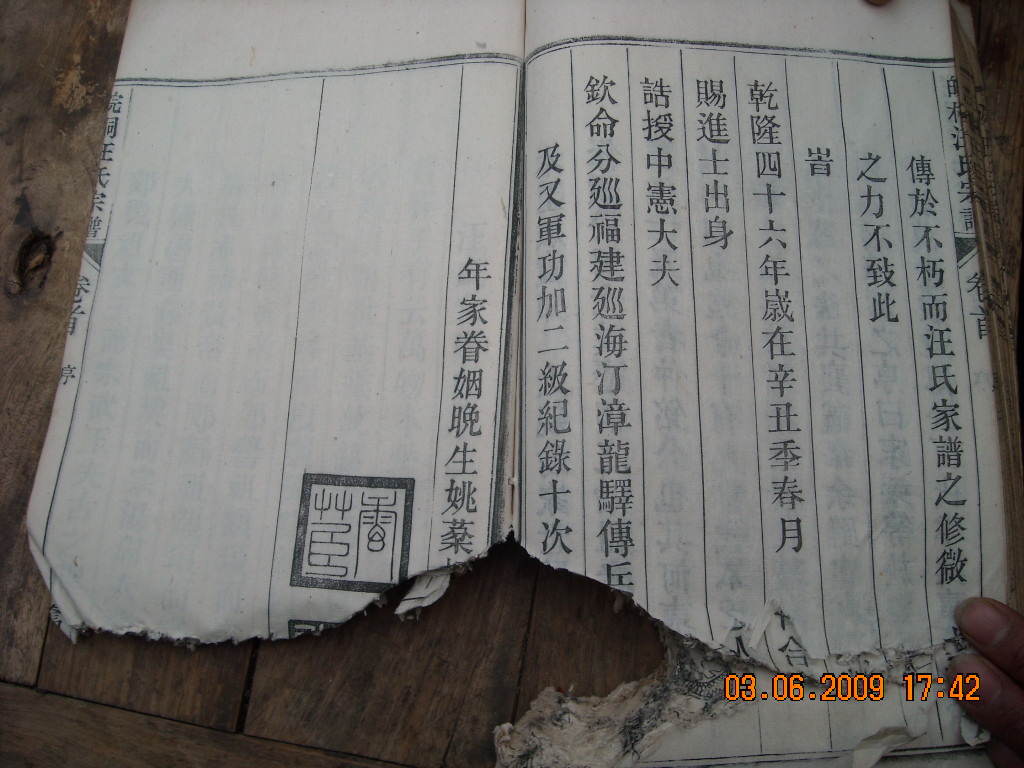 傳於不朽而汪氏家譜之修微
之力不致此
旹
乾隆四十六年歲在辛丑季春月
賜進士出身
誥授中憲大夫
欽命分廵福建廵海汀漳龍驛傳兵
及又軍功加二級紀錄十次
年家眷姻晚生姚棻
香茝
皖桐汪氏宗譜 卷之首 序
03.06.2009 17:42